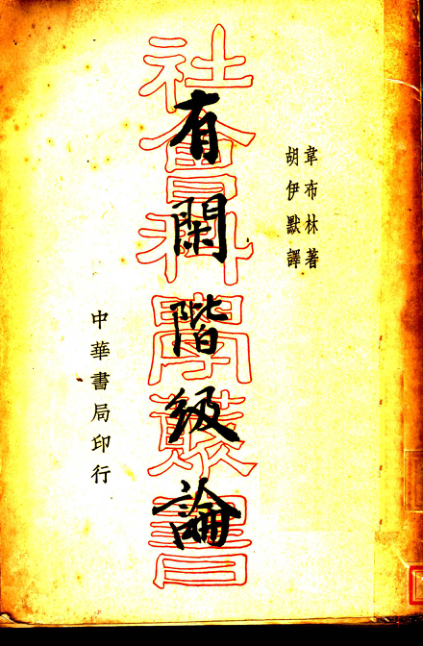 韋布林著
胡伊默譯
社會科學叢書
有閑階級論
中華書局印行